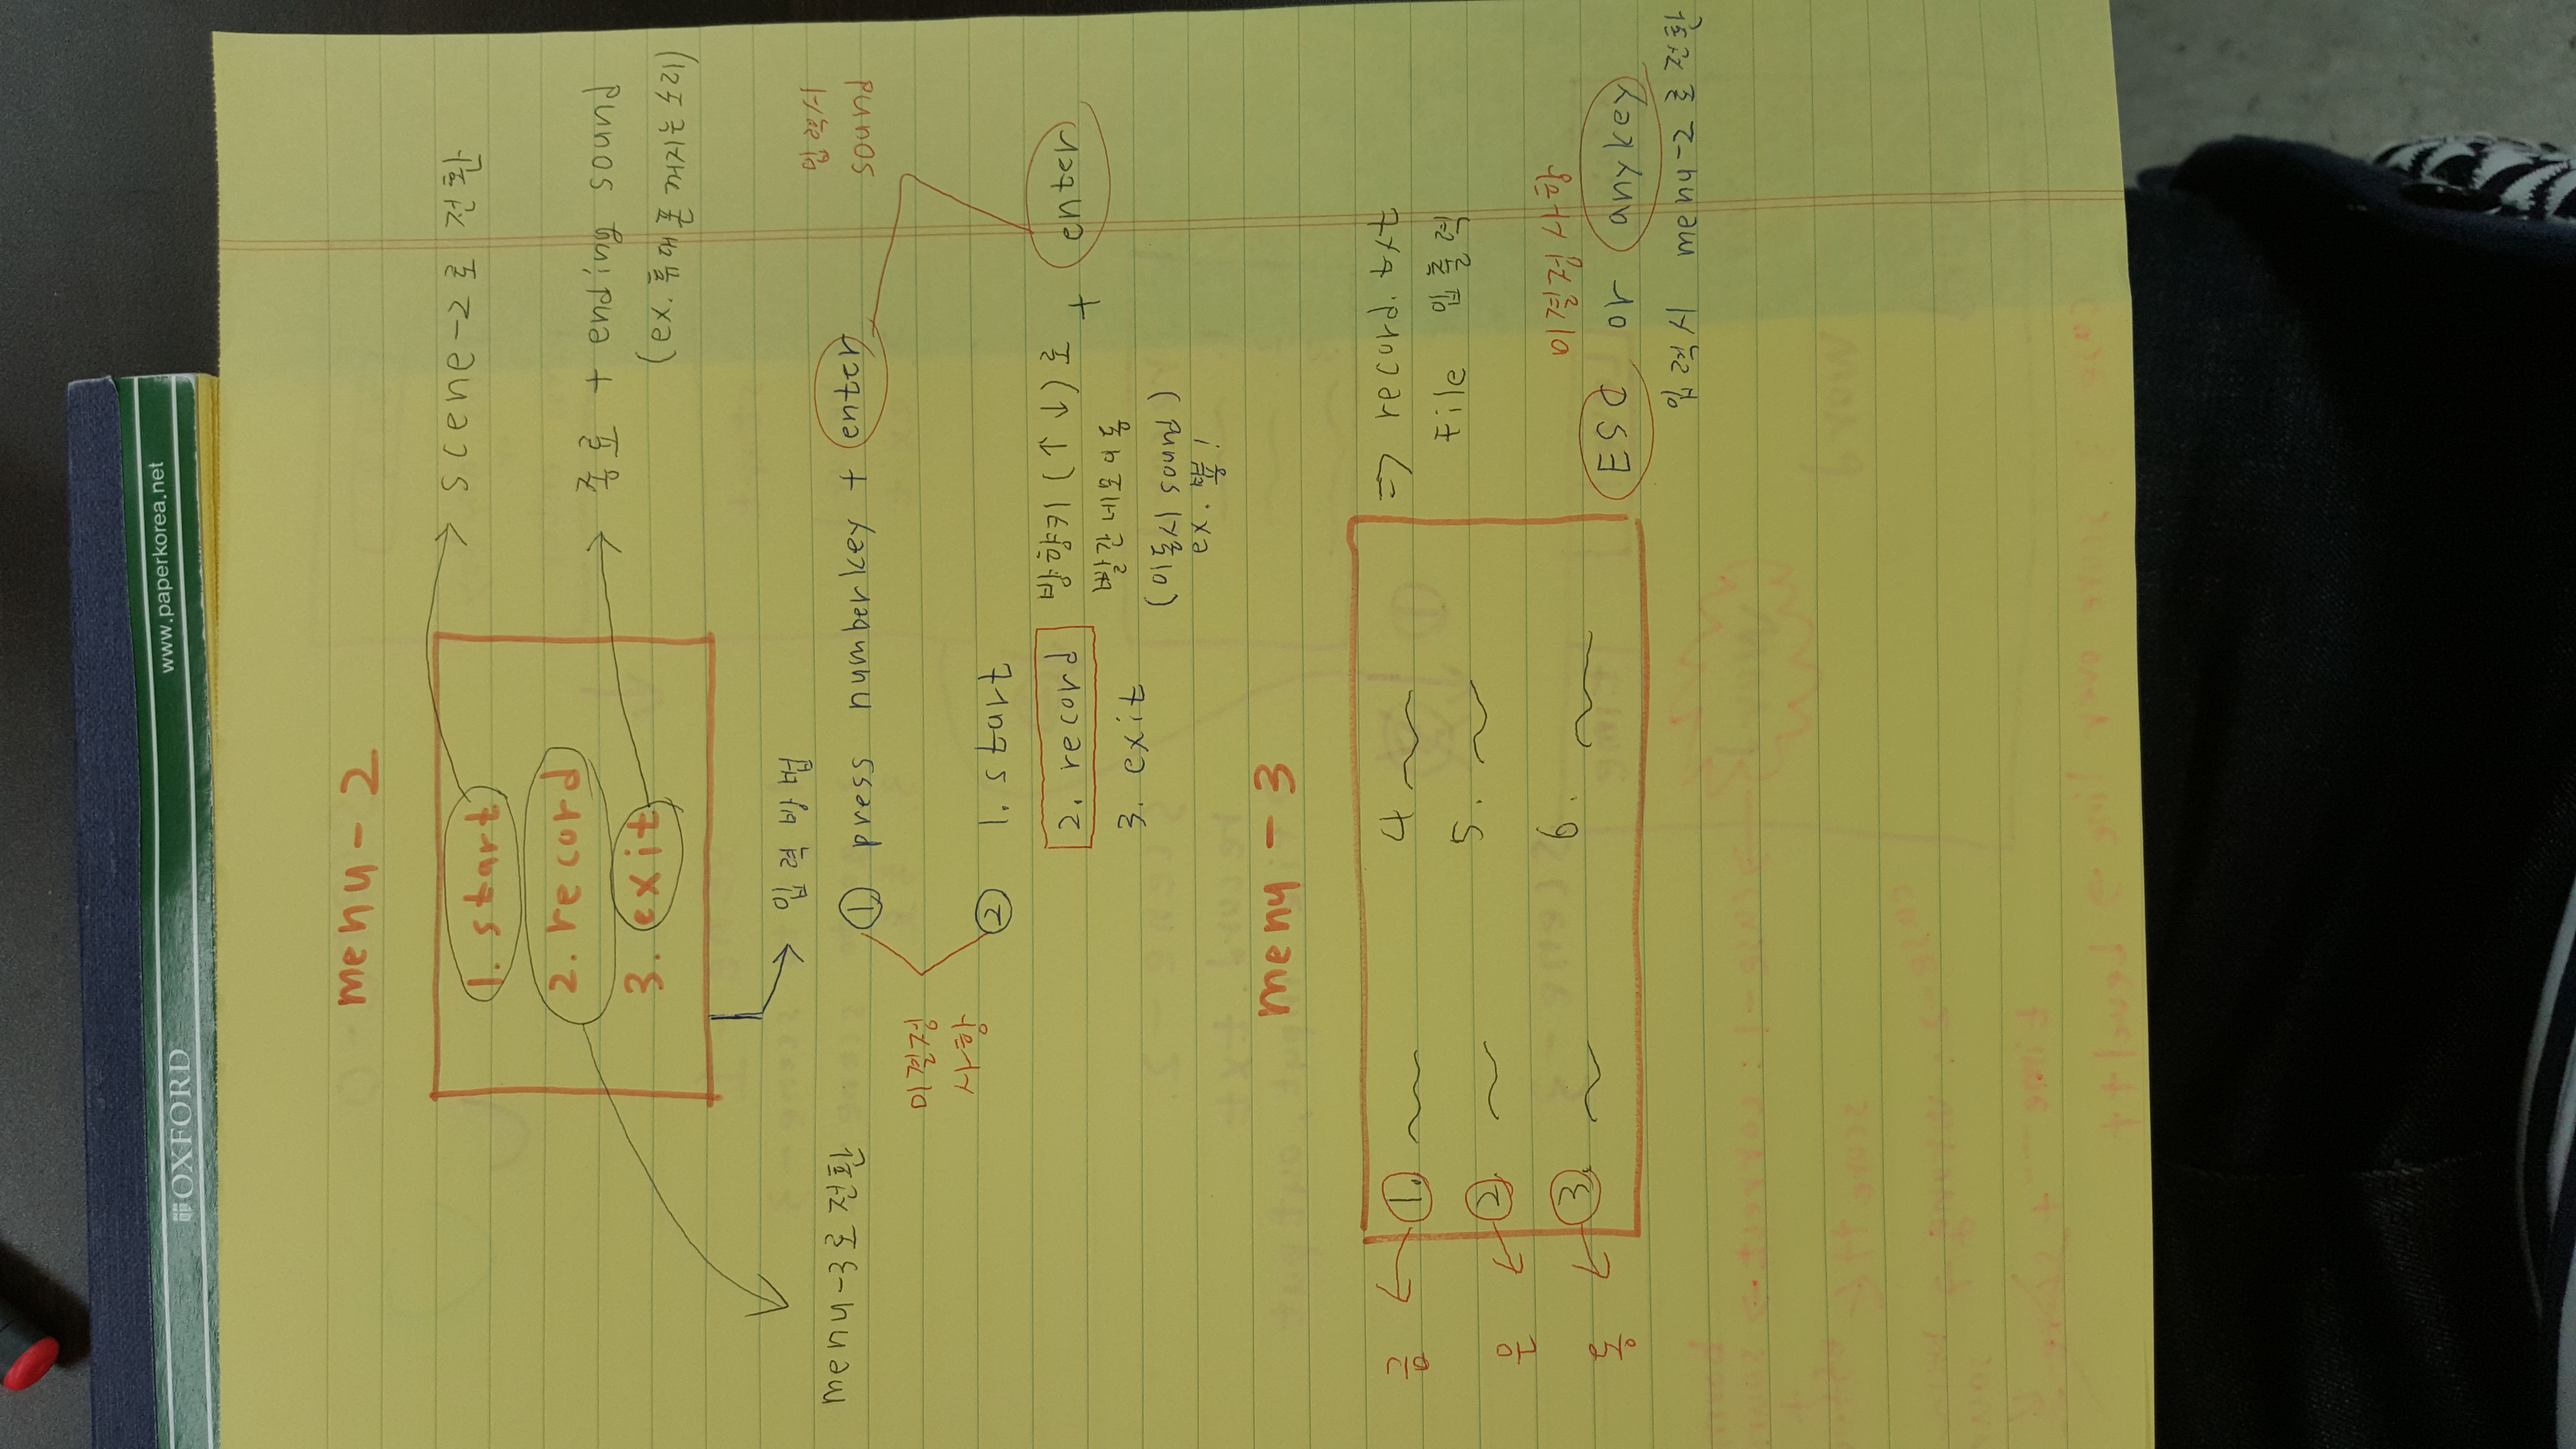 OXFORD
www.paperkorea.net
menu-2
1. start
scene-2로 전환
2. record
3. exit
종료 + ending sound
(ex. 휴대폰 꺼지는 소리)
입력방법
menu-3로 전환
미결정
사항
① press numberkey + enter
입력시
sound
② 1. start
2. record
3. exit
방향키 (↑ ↓) 로
빨간네모이동
(이동시 sound)
ex. 뿅!
+ enter
menu - 3
금 1.
은 2.
동 3.
4
5.
6.
⇒ record.txt
File 입출력
미결정사항
ESC or anykey
입력시 menu-2로전환